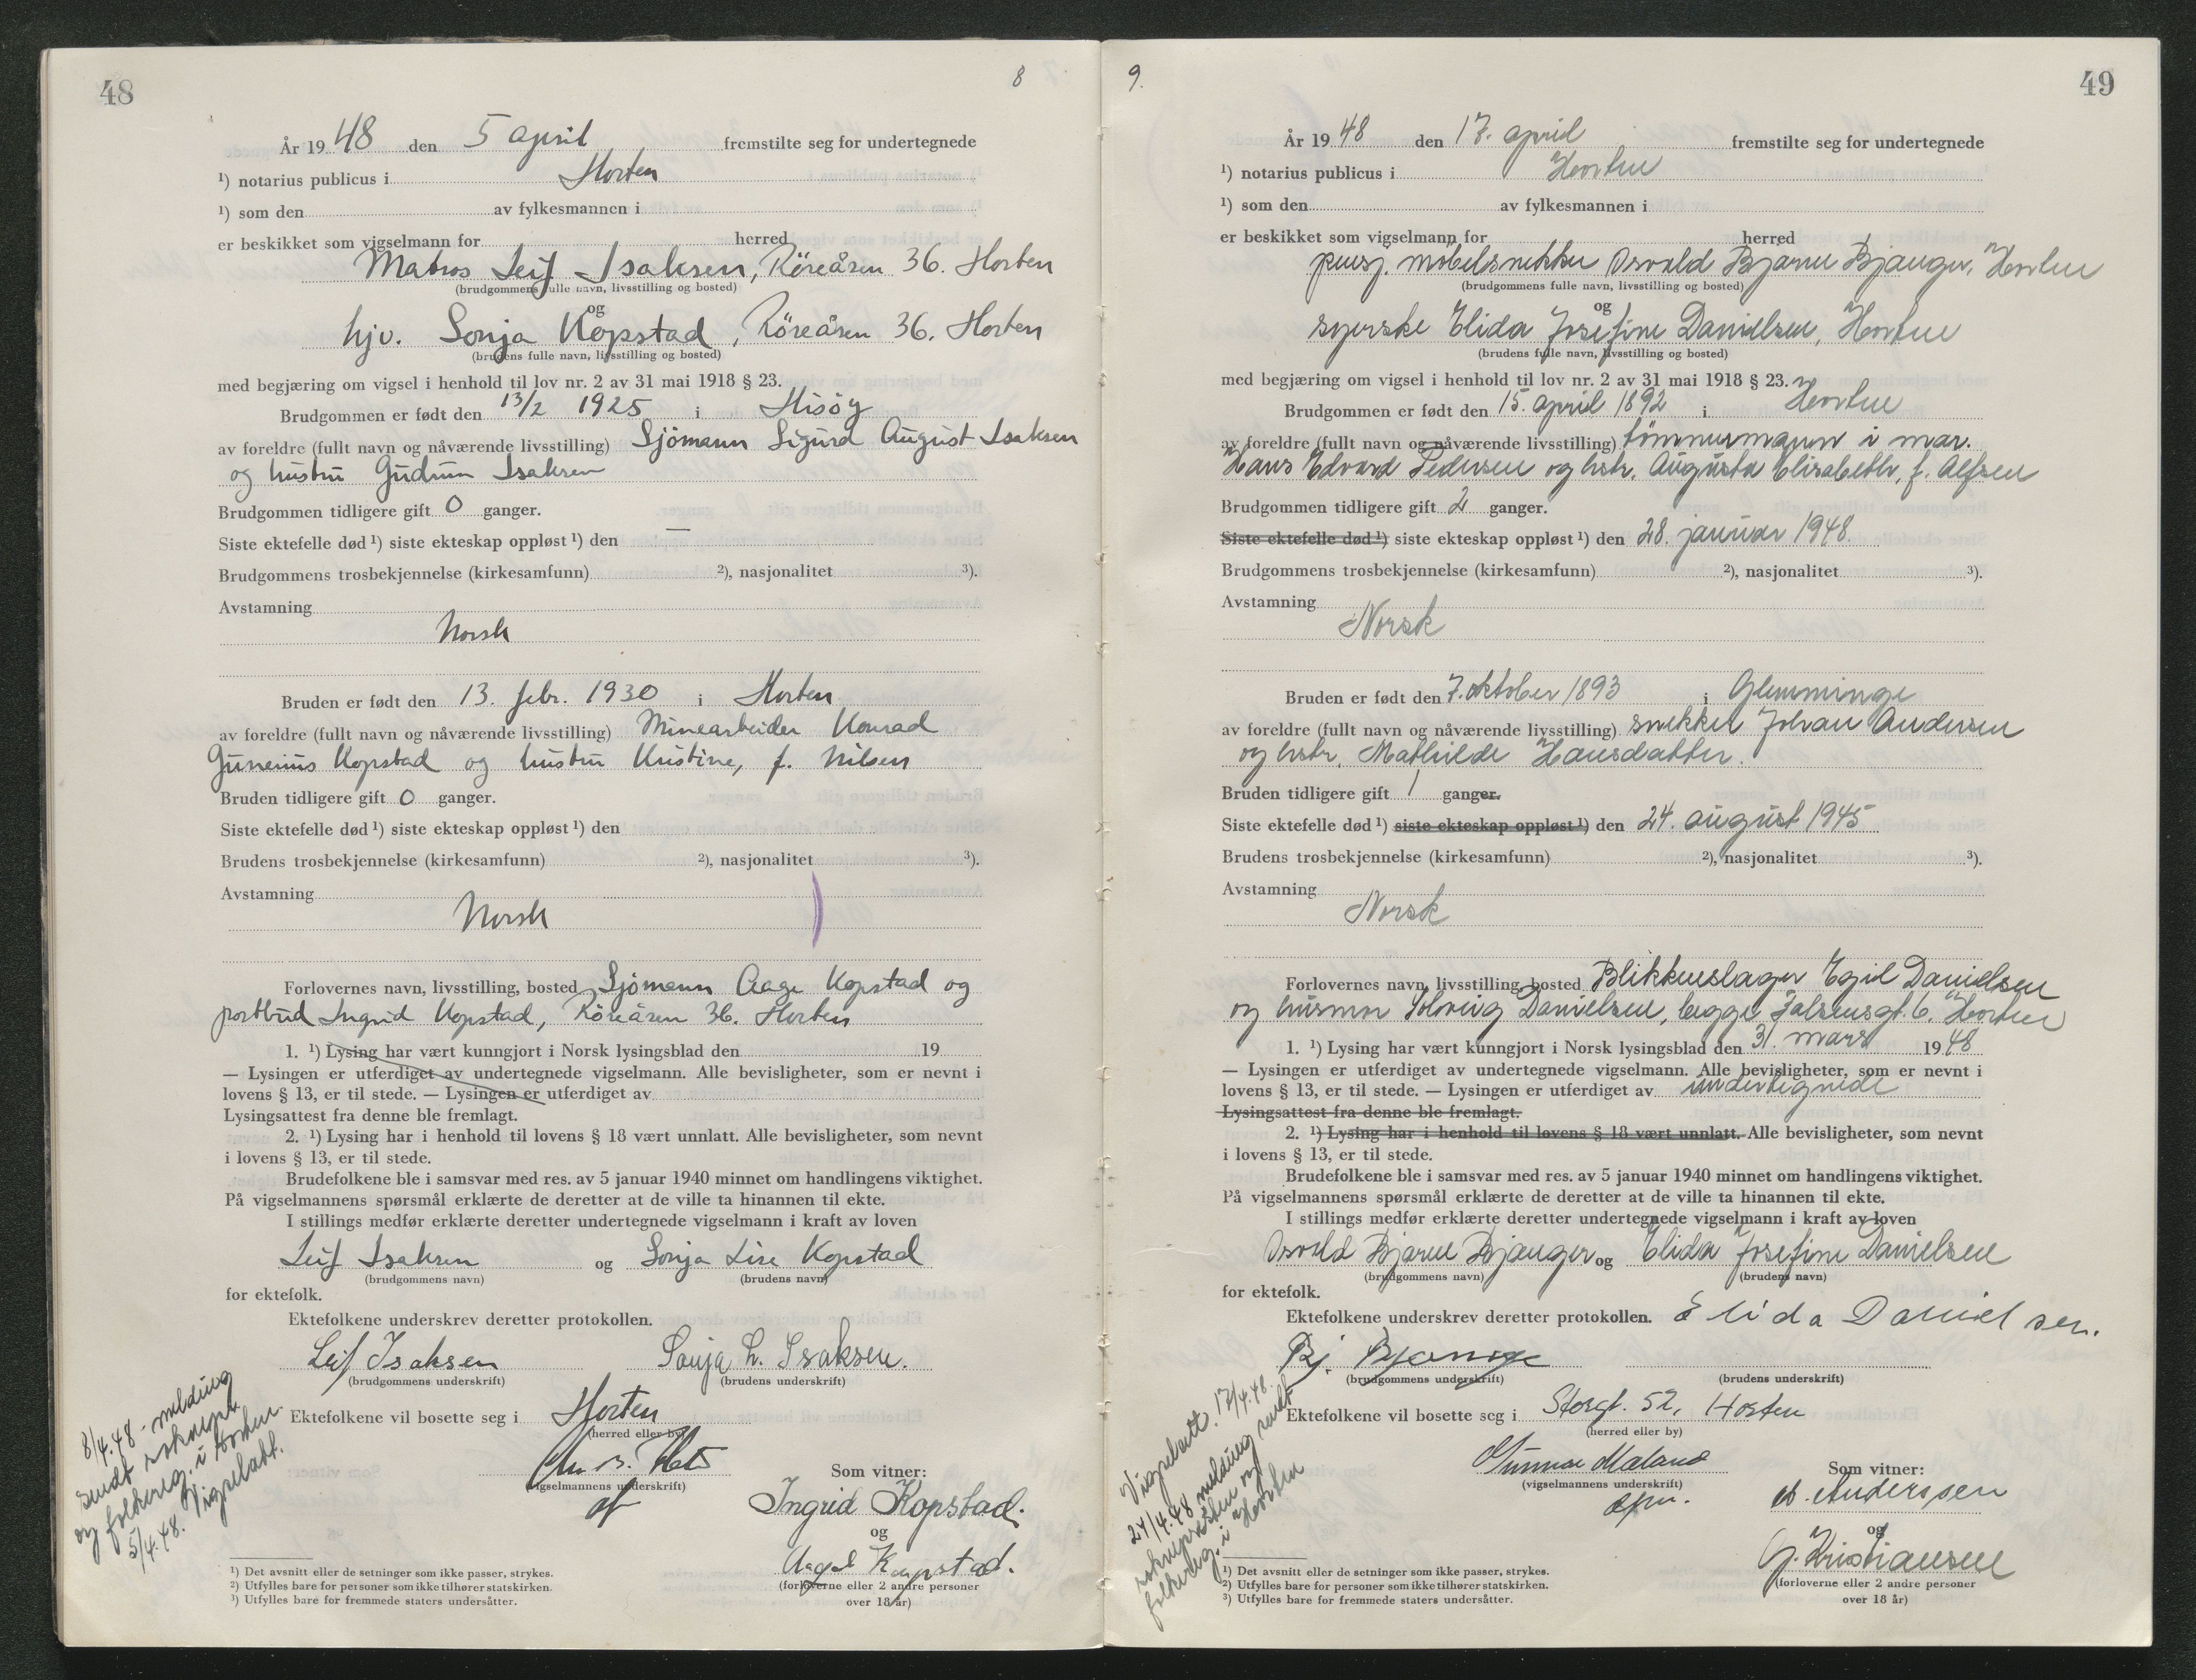 48
8
År 1948 den 5 april fremstilte seg for undertegnede
¹) notarius publicus i Horten
¹) som den av fylkesmannen i
er beskikket som vigselmann for herred
Matros Leif Isaksen, Röreåsen 36. Horten
(brudgommens fulle navn, livsstilling og bosted)
og
hjv. Sonja Kopstad, Röreåsen 36. Horten
(brudens fulle navn, livsstilling og bosted)
med begjæring om vigsel i henhold til lov nr. 2 av 31 mai 1918 § 23.
Brudgommen er født den 13/2 1925 i Hisöy
av foreldre (fullt navn og nåværende livsstilling) Sjömann Sigurd August Isaksen
og hustru Gudrun Isaksen
Brudgommen tidligere gift 0 ganger.
Siste ektefelle død ¹) siste ekteskap oppløst ¹) den —
Brudgommens trosbekjennelse (kirkesamfunn) ²), nasjonalitet ³).
Avstamning
Norsk
Bruden er født den 13. febr. 1930 i Horten
av foreldre (fullt navn og nåværende livsstilling) Minearbeider Konrad
Gunerius Kopstad og hustru Kristine, f. Nilsen
Bruden tidligere gift 0 ganger.
Siste ektefelle død ¹) siste ekteskap oppløst ¹) den
Brudens trosbekjennelse (kirkesamfunn) ²), nasjonalitet ³).
Avstamning
Norsk
Forlovernes navn, livsstilling, bosted Sjömann Aage Kopstad og
postbud Ingrid Kopstad, Röreåsen 36. Horten
1. ¹) Lysing har vært kunngjort i Norsk lysingsblad den 19
— Lysingen er utferdiget av undertegnede vigselmann. Alle bevisligheter, som er nevnt i
lovens § 13, er til stede. — Lysingen er utferdiget av
Lysingsattest fra denne ble fremlagt.
2. ¹) Lysing har i henhold til lovens § 18 vært unnlatt. Alle bevisligheter, som nevnt
i lovens § 13, er til stede.
Brudefolkene ble i samsvar med res. av 5 januar 1940 minnet om handlingens viktighet.
På vigselmannens spørsmål erklærte de deretter at de ville ta hinannen til ekte.
I stillings medfør erklærte deretter undertegnede vigselmann i kraft av loven
Leif Isaksen og Sonja Lise Kopstad
(brudgommens navn) (brudens navn)
for ektefolk.
Ektefolkene underskrev deretter protokollen.
Leif Isaksen Sonja L. Isaksen.
(brudgommens underskrift) (brudens underskrift)
Ektefolkene vil bosette seg i Horten
(herred eller by)
(vigselmannens underskrift)
Som vitner:
Ingrid Kopstad.
og
Aage Kopstad.
(forloverne eller 2 andre personer
over 18 år)
8/4.48 - melding
sendt sokneprt.
og folkereg. i Horten.
5/4.48. Vigselatt.
¹) Det avsnitt eller de setninger som ikke passer, strykes.
²) Utfylles bare for personer som ikke tilhører statskirken.
³) Utfylles bare for fremmede staters undersåtter.
9.
49
År 1948 den 17. april fremstilte seg for undertegnede
¹) notarius publicus i Horten
¹) som den av fylkesmannen i
er beskikket som vigselmann for herred
pensj. möbelsnekker Osvald Bjarne Bjanger, Horten
(brudgommens fulle navn, livsstilling og bosted)
og
syerske Elida Josefine Danielsen, Horten
(brudens fulle navn, livsstilling og bosted)
med begjæring om vigsel i henhold til lov nr. 2 av 31 mai 1918 § 23.
Brudgommen er født den 15. april 1892 i Horten
av foreldre (fullt navn og nåværende livsstilling) tömmermann i mar.
Hans Edvard Pedersen og hstr. Augusta Elisabeth, f. Alfsen
Brudgommen tidligere gift 2 ganger.
Siste ektefelle død ¹) siste ekteskap oppløst ¹) den 28. januar 1948.
Brudgommens trosbekjennelse (kirkesamfunn) ²), nasjonalitet ³).
Avstamning
Norsk
Bruden er født den 7. oktober 1893 i Glemminge
av foreldre (fullt navn og nåværende livsstilling) snekker Johan Andersen
og hstr. Mathilde Hansdatter.
Bruden tidligere gift 1 ganger.
Siste ektefelle død ¹) siste ekteskap oppløst ¹) den 24. august 1945
Brudens trosbekjennelse (kirkesamfunn) ²), nasjonalitet ³).
Avstamning
Norsk
Forlovernes navn, livsstilling, bosted Blikkenslager Egil Danielsen
og husmor Solveig Danielsen, begge Falsensgt. 6. Horten
1. ¹) Lysing har vært kunngjort i Norsk lysingsblad den 31. mars 1948
— Lysingen er utferdiget av undertegnede vigselmann. Alle bevisligheter, som er nevnt i
lovens § 13, er til stede. — Lysingen er utferdiget av undertegnede
Lysingsattest fra denne ble fremlagt.
2. ¹) Lysing har i henhold til lovens § 18 vært unnlatt. Alle bevisligheter, som nevnt
i lovens § 13, er til stede.
Brudefolkene ble i samsvar med res. av 5 januar 1940 minnet om handlingens viktighet.
På vigselmannens spørsmål erklærte de deretter at de ville ta hinannen til ekte.
I stillings medfør erklærte deretter undertegnede vigselmann i kraft av loven
Osvald Bjarne Bjanger og Elida Josefine Danielsen
(brudgommens navn) (brudens navn)
for ektefolk.
Ektefolkene underskrev deretter protokollen. Elida Danielsen.
Bj. Bjanger
(brudgommens underskrift) (brudens underskrift)
Ektefolkene vil bosette seg i Storgt. 52, Horten
(herred eller by)
Gunnar Maland
(vigselmannens underskrift)
Som vitner:
A. Anderssen
og
G. Kristiansen
(forloverne eller 2 andre personer
over 18 år)
Vigselatt. 17/4.48.
24/4.48 melding sendt
soknepresten og
folkereg. i Horten
¹) Det avsnitt eller de setninger som ikke passer, strykes.
²) Utfylles bare for personer som ikke tilhører statskirken.
³) Utfylles bare for fremmede staters undersåtter.